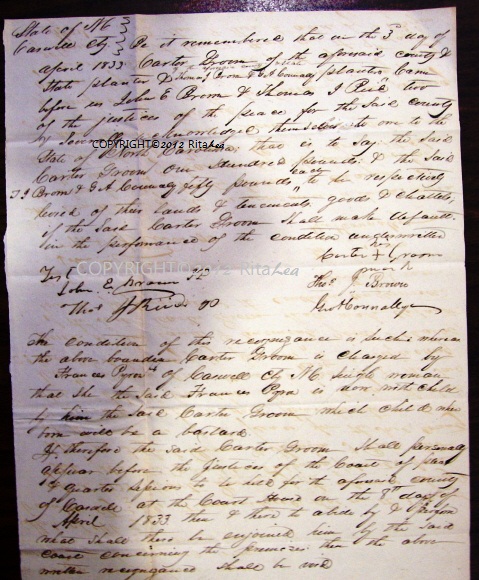 State of NC
Caswell Cty Be it remembered that on the 3d day of
April 1833 Carter Groom of the aforesaid county &
State planter & Thomas J Brown & G A Connaly planters Came
before us John E Brown & Thomas J Reid two
of the justices of the peace for the Said county
by Law & acknowledged themselves to owe to the
State of North Carolina that is to say the Said
Carter Groom One Hundred pounds & the Said
T J Brown & G A Connaly fifty pounds each to be respectively
levied of their lands & tenements goods & chattels,
if the Said Carter Groom Shall make default
in the performance of the condition underwritten
his
Carter + Groom
mark
Test
Thos J Brown
John E Brown JP
Geo A Connally
Thos J Reid JP
COPYRIGHT©2012 RitaLea
COPYRIGHT©2012 Rita Lea
The condition of this recognizance is Such: whereas
the above bounden Carter Groom is charged by
Frances Pyron of Caswell Cty NC Single woman
that She the Said Frances Pyron is now with child
by him the Said Carter Groom which child when
born will be a bastard
If therefore the Said Carter Groom Shall personally
appear before the justices of the Court of pleas
& quarter sessions to be held for the aforesaid county
of Caswell at the Court House on the 3d day of
April 1833 then & there to abide by & perform
what Shall there be enjoined him by the Said
court concerning the premises then the above
written recognizance Shall be void